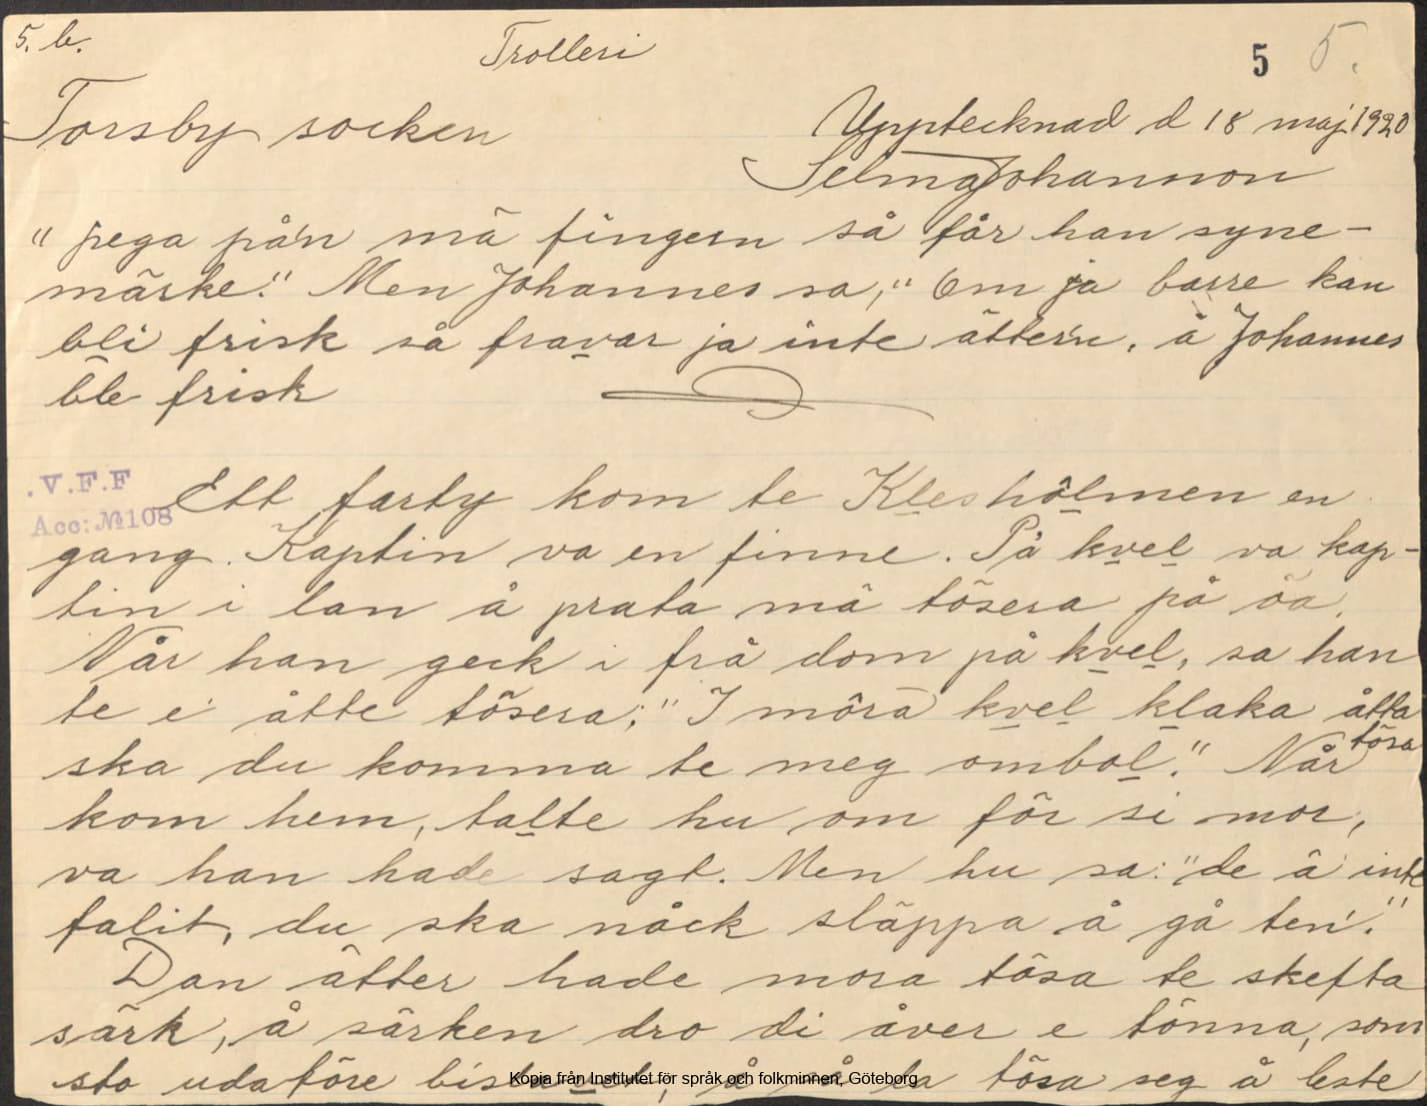 5. b.
Trolleri
5 5.
Torsby socken
Upptecknad d 18 maj 1920
Selma Johansson
"pega på'n mä fingern så får han syne-
märke." Men Johannes sa, "Om ja barre kan
bli frisk så fravar ja inte ätter'n, å Johannes
ble frisk
.V.F.F
Acc: № 108
Ett farty kom te Klesholmen en
gang. Kaptin va en finne. På kvel va kap-
tin i lan å prata mä tösera på öa.
Når han geck i frå dom på kvel, sa han
te e åtte tösera: "I môra kvel klaka åtta
ska du komma te meg ombol." Når tösa
kom hem, talte hu om för si mor,
va han hade sagt. Men hu sa: "de ä inte
falit, du ska nåck släppa å gå ten."
Dan ätter hade mora tösa te skefta
särk, å särken dro di åver e tönna, som
sto udaföre å så la tösa seg å leste
Kopia från Institutet för språk och folkminnen, Göteborg